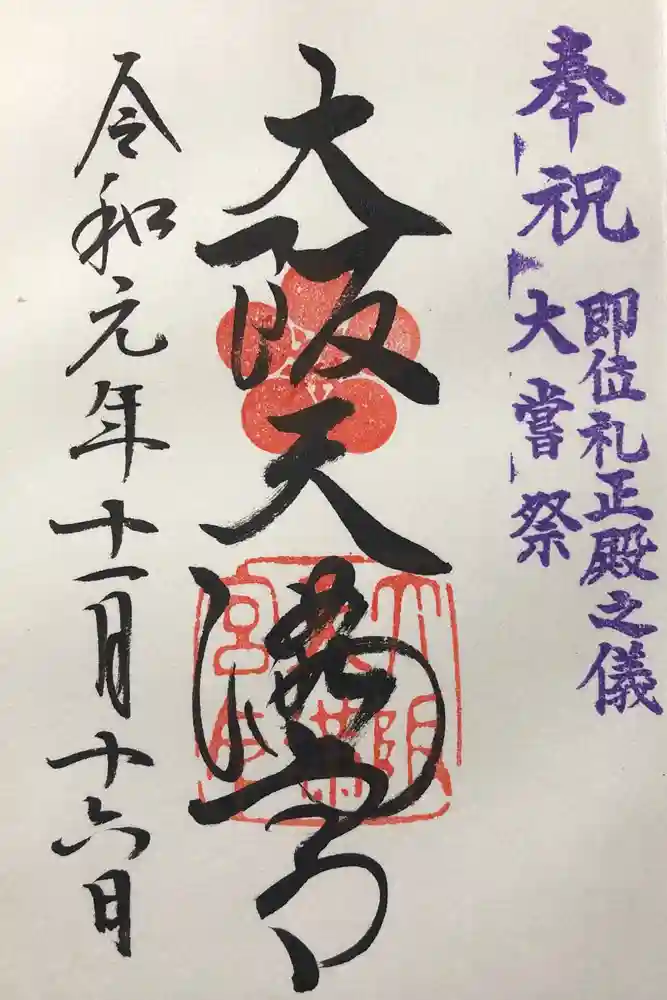 奉祝
即位礼正殿之儀
大嘗祭
大阪天満宮
令和元年十一月十六日